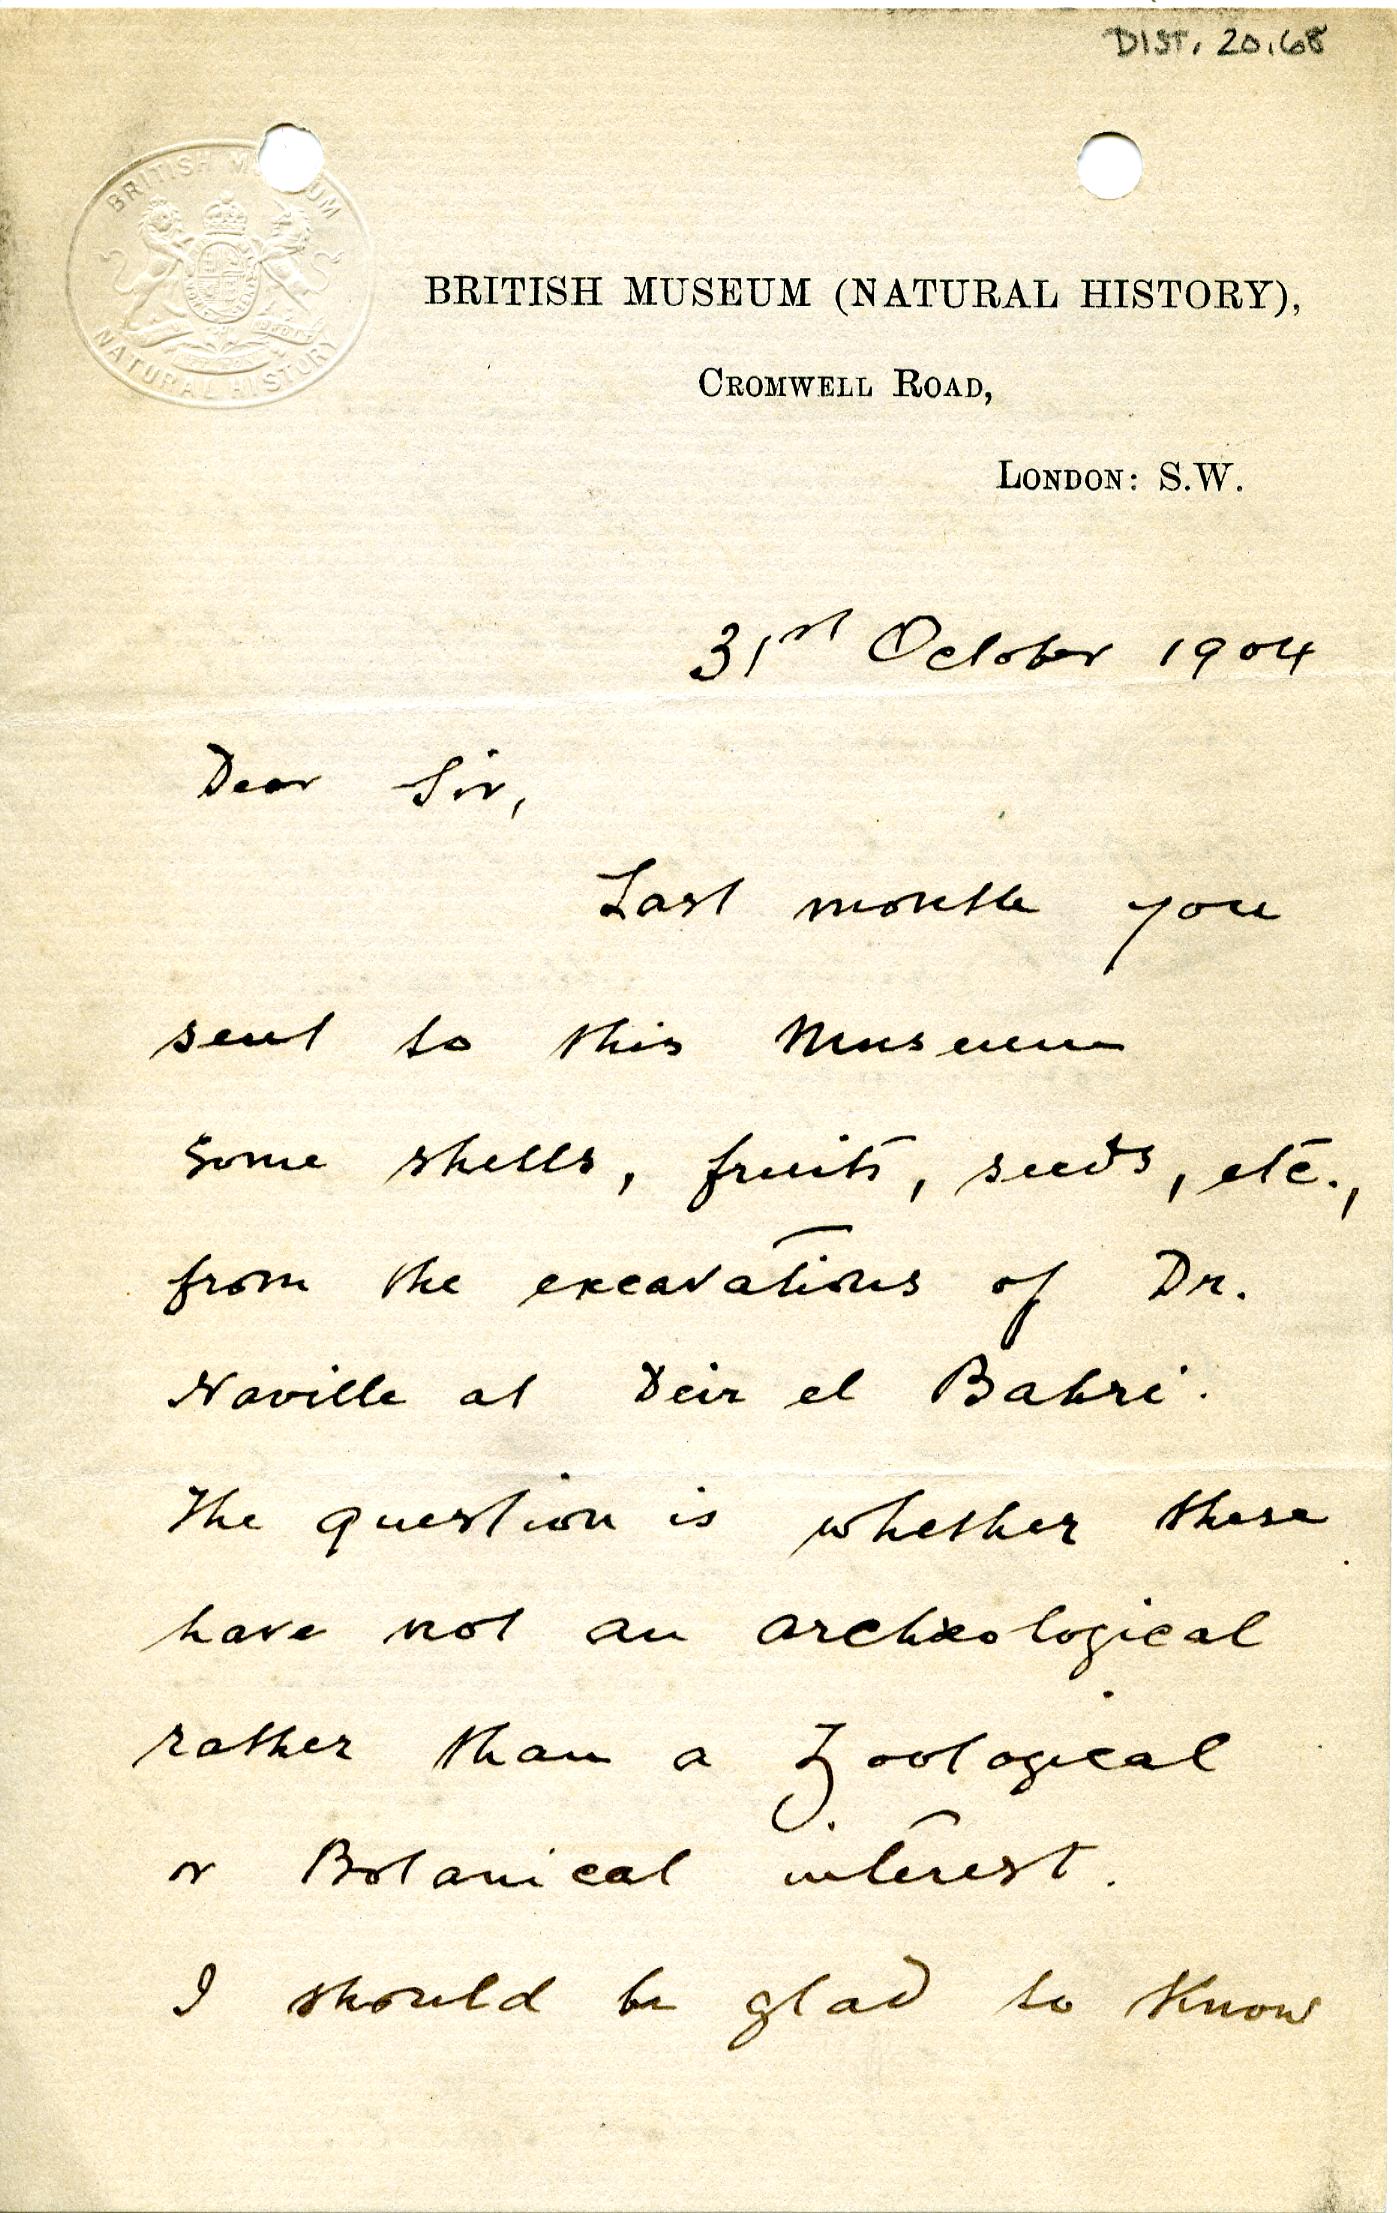 DIST. 20.68
BRITISH MUSEUM
NATURAL HISTORY
BRITISH MUSEUM (NATURAL HISTORY),
CROMWELL ROAD,
LONDON: S.W.
31st October 1904
Dear Sir,
Last month you
sent to this Museum
some shells, fruits, seeds, etc.,
from the excavations of Dr.
Naville at Deir el Bahri.
The question is whether these
have not an archæological
rather than a Zoological
or Botanical interest.
I should be glad to know